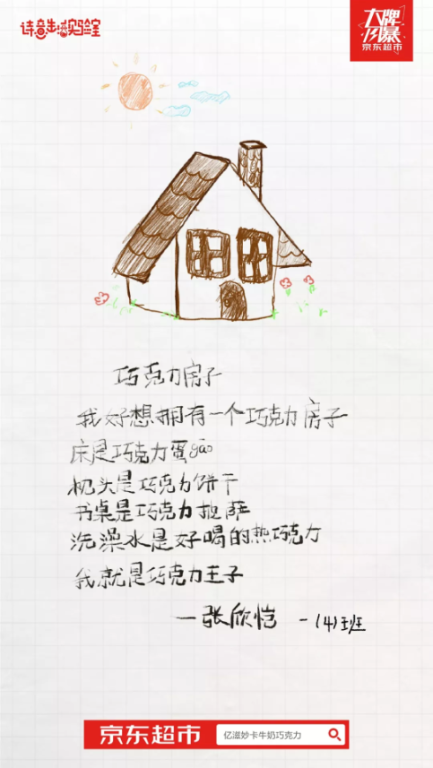 大牌
风暴
京东超市
巧克力房子
我好想拥有一个巧克力房子
床是巧克力蛋gāo
枕头是巧克力饼干
书桌是巧克力披萨
洗澡水是好喝的热巧克力
我就是巧克力王子
—张欣恺 一(4)班
京东超市
亿滋妙卡牛奶巧克力